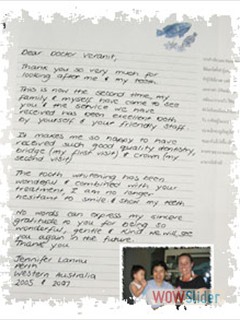 Dear Doctor
Thank you so very much for
looking after me & my teeth.
This is now the second time, my
family & myself have come to see
you & the service we have
received has been excellent both
by yourself & your friendly staff.
It makes me so happy to have
received such good quality dentistry,
bridge (my first visit) & crown (my
second visit)
The tooth whitening has been
wonderful & combined with your
treatment, I am no longer
hesitant to smile & show my teeth
No words can express my sincere
gratitude to you for being so
wonderful, gentle & kind. We will see
you again in the future.
Thank you
Jennifer
Perth
Western Australia
2005 & 2007
WOWSlider